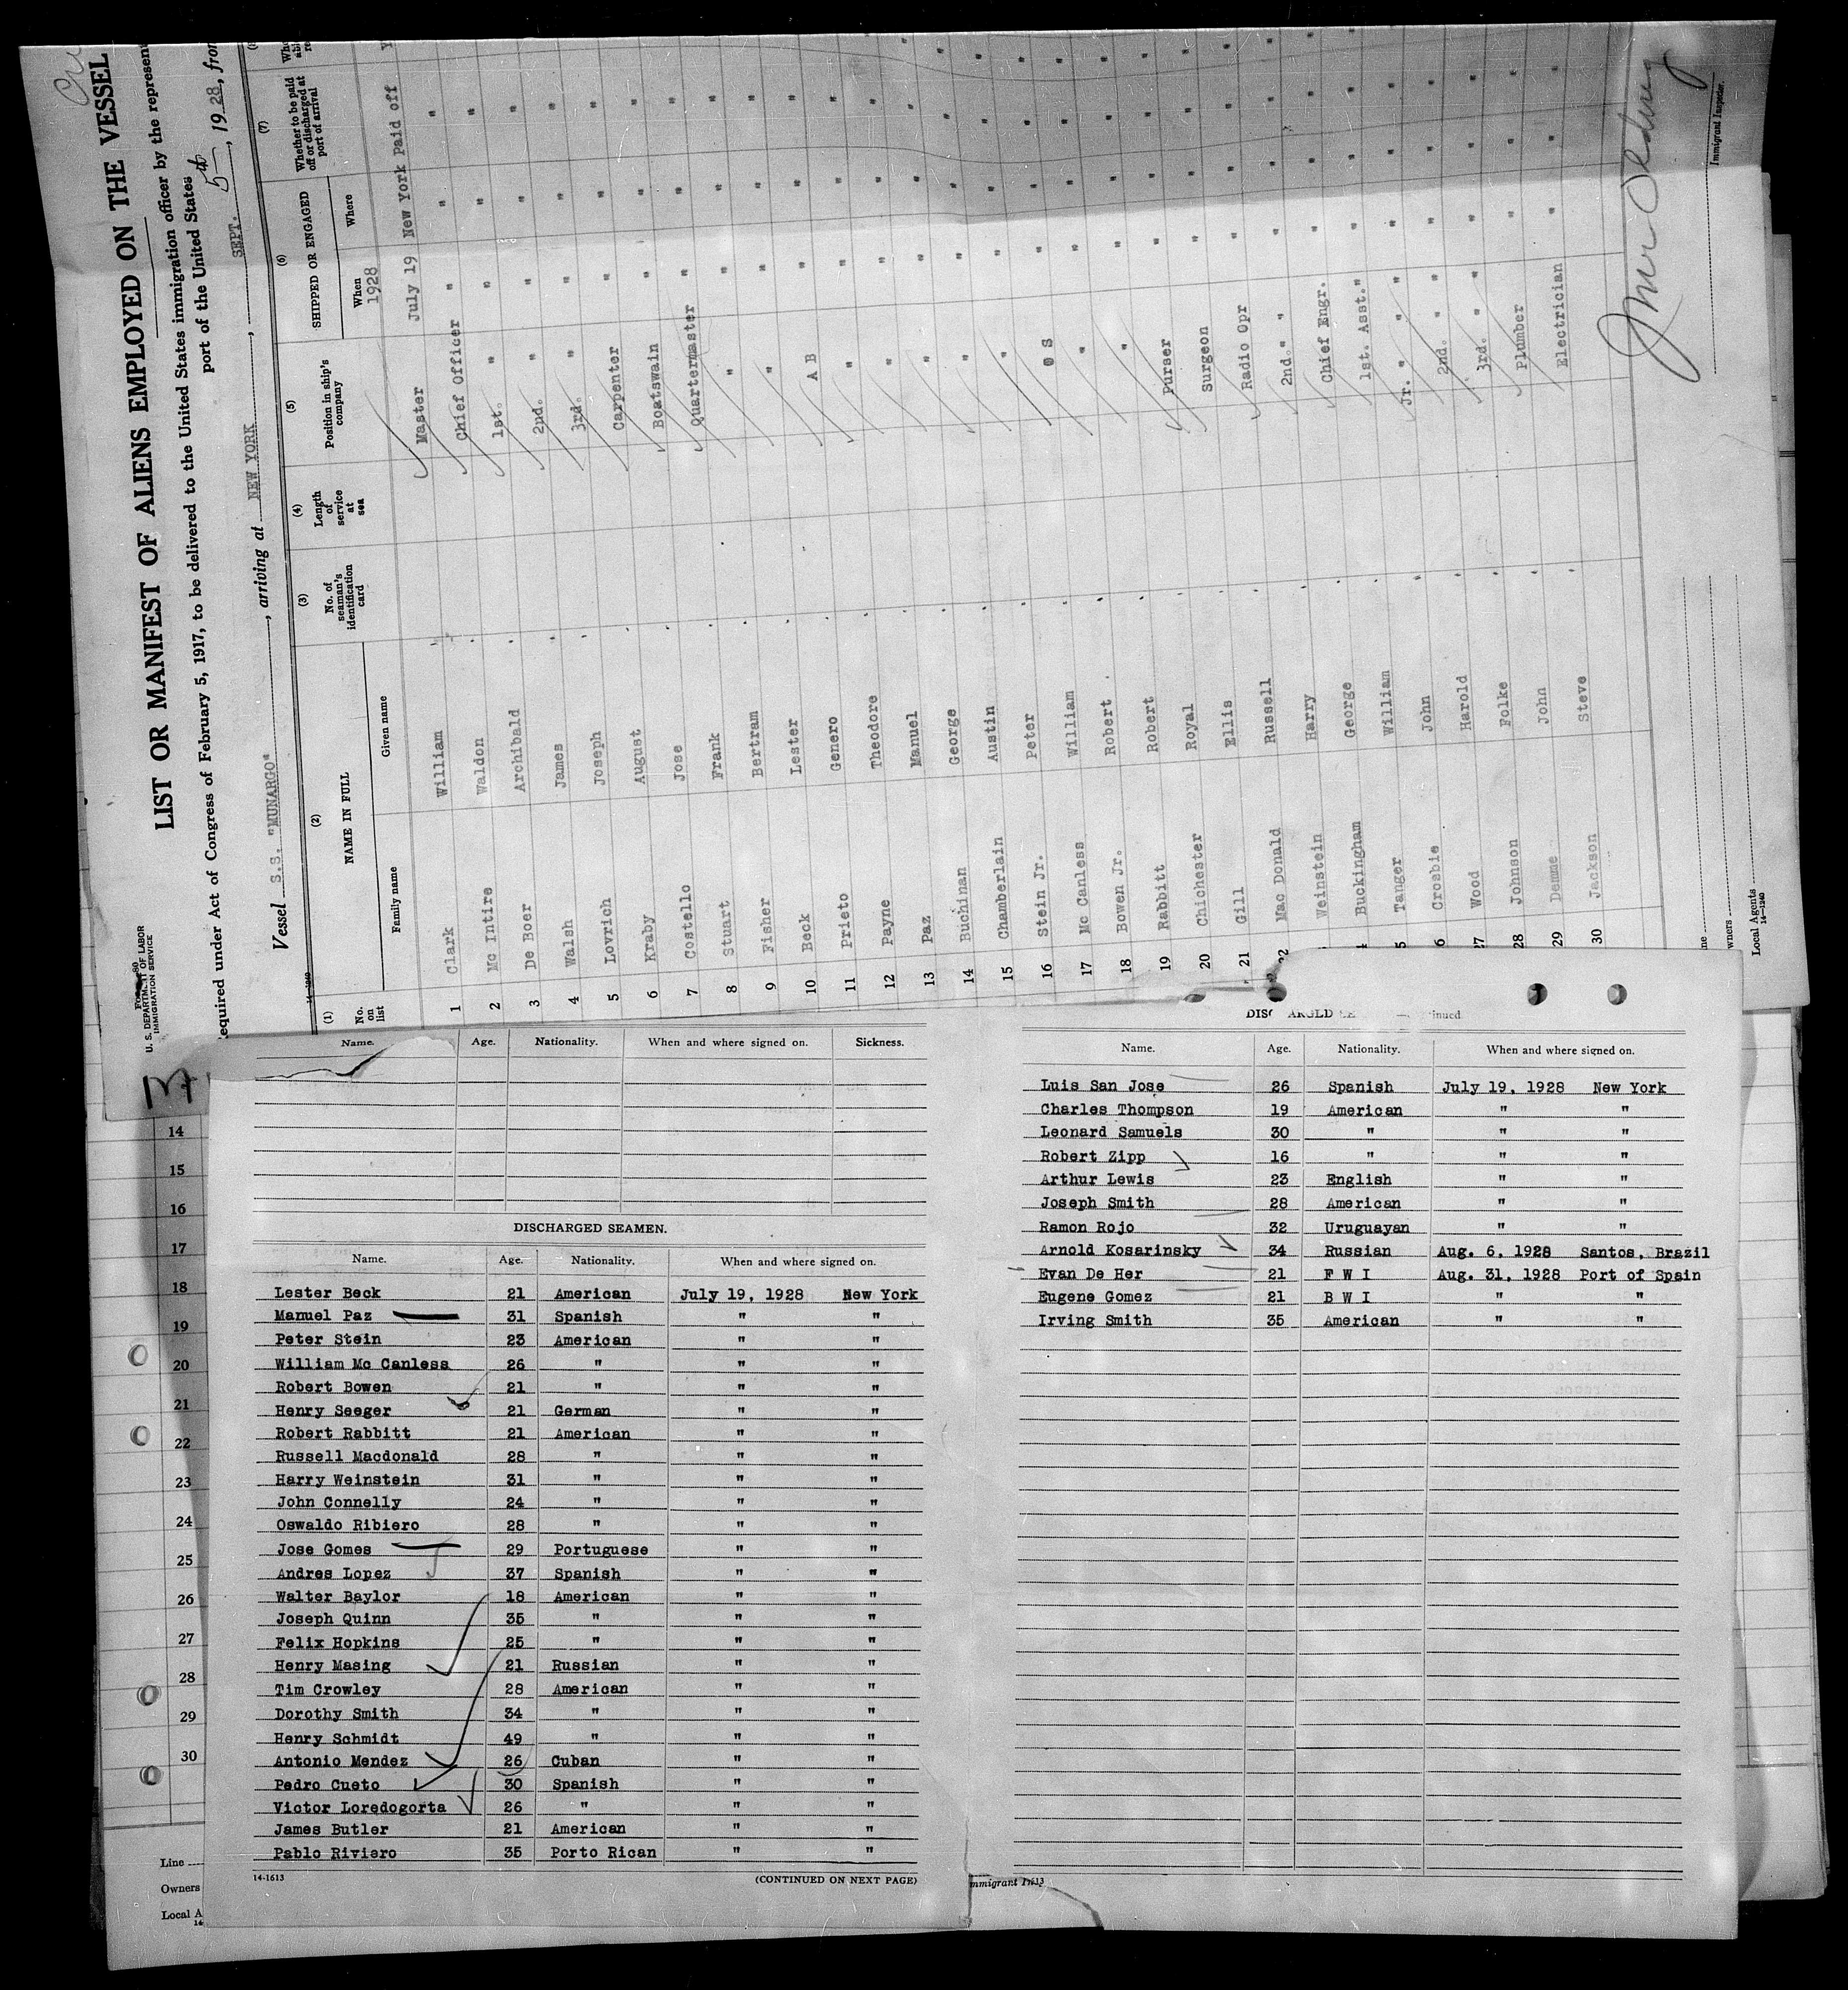 Form 680
U. S. DEPARTMENT OF LABOR
IMMIGRATION SERVICE
LIST OR MANIFEST OF ALIENS EMPLOYED ON THE VESSEL
equired under Act of Congress of February 5, 1917, to be delivered to the United States immigration officer by the represent
port of the United States
Vessel S.S. "MUNARGO", arriving at NEW YORK, SEPT. 5th, 1928, from
(1) (2) (3) (4) (5) (6) (7)
No. on list NAME IN FULL No. of seaman's identification card Length of service at sea Position in ship's company SHIPPED OR ENGAGED Whether to be paid off or discharged at port of arrival
Family name Given name When Where
1928
1 Clark William Master July 19 New York Paid off
2 Mc Intire Waldon Chief Officer " " "
3 De Boer Archibald 1st. " " " "
4 Walsh James 2nd. " " " "
5 Lovrich Joseph 3rd. " " " "
6 Kraby August Carpenter " " "
7 Costello Jose Boatswain " " "
8 Stuart Frank Quartermaster " " "
9 Fisher Bertram " " " "
10 Beck Lester " " " "
11 Prieto Genero A B " " "
12 Payne Theodore " " " "
13 Paz Manuel " " " "
14 Buchinan George " " " "
15 Chamberlain Austin " " " "
16 Stein Jr. Peter " " " "
17 Mc Canless William O S " " "
18 Bowen Jr. Robert " " " "
19 Rabbitt Robert " " " "
20 Chichester Royal Purser " " "
21 Gill Ellis Surgeon " " "
22 Mac Donald Russell Radio Opr " " "
Weinstein Harry 2nd. " " " " "
Buckingham George Chief Engr. " " "
5 Tanger William 1st. Asst. " " " "
6 Crosbie John Jr. " " " " "
27 Wood Harold 2nd. " " " "
28 Johnson Folke 3rd. " " " "
29 Demme John Plumber " " "
30 Jackson Steve Electrician " " "
Immigrant Inspector.
wners
Local Agents
14—1240
Name. Age. Nationality. When and where signed on. Sickness.
DISCHARGED SEAMEN.
Name. Age. Nationality. When and where signed on.
Lester Beck 21 American July 19, 1928 New York
Manuel Paz 31 Spanish " "
Peter Stein 23 American " "
William Mc Canless 26 " " "
Robert Bowen 21 " " "
Henry Seeger 21 German " "
Robert Rabbitt 21 American " "
Russell Macdonald 28 " " "
Harry Weinstein 31 " " "
John Connelly 24 " " "
Oswaldo Ribiero 28 " " "
Jose Gomes 29 Portuguese " "
Andres Lopez 37 Spanish " "
Walter Baylor 18 American " "
Joseph Quinn 35 " " "
Felix Hopkins 25 " " "
Henry Masing 21 Russian " "
Tim Crowley 28 American " "
Dorothy Smith 34 " " "
Henry Schmidt 49 " " "
Antonio Mendez 26 Cuban " "
Pedro Cueto 30 Spanish " "
Victor Loredogorta 26 " " "
James Butler 21 American " "
Pablo Riviero 35 Porto Rican " "
14-1613 (CONTINUED ON NEXT PAGE)
inued
Name. Age. Nationality. When and where signed on.
Luis San Jose 26 Spanish July 19, 1928 New York
Charles Thompson 19 American " "
Leonard Samuels 30 " " "
Robert Zipp 16 " " "
Arthur Lewis 23 English " "
Joseph Smith 28 American " "
Ramon Rojo 32 Uruguayan " "
Arnold Kosarinsky 34 Russian Aug. 6, 1928 Santos, Brazil
Evan De Her 21 F W I Aug. 31, 1928 Port of Spain
Eugene Gomez 21 B W I " "
Irving Smith 35 American " "
14
15
16
17
18
19
20
21
22
23
24
25
26
27
28
29
30
Line
Owners
Local A